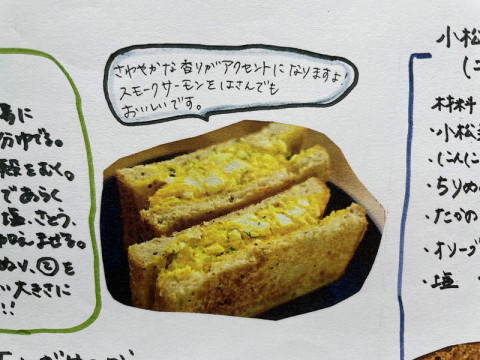 さわやかな香りがアクセントになりますよ♪
スモークサーモンをはさんでも
おいしいです。
湯に
分ゆでる。
殻をむく。
であらく
塩、さとう、
加えまぜる。
ぬり、②を
い大きさに
!!
小松
(ニ
材料
・小松菜
・にんにく
・ちりめん
・たかの
・オリーブ
・塩